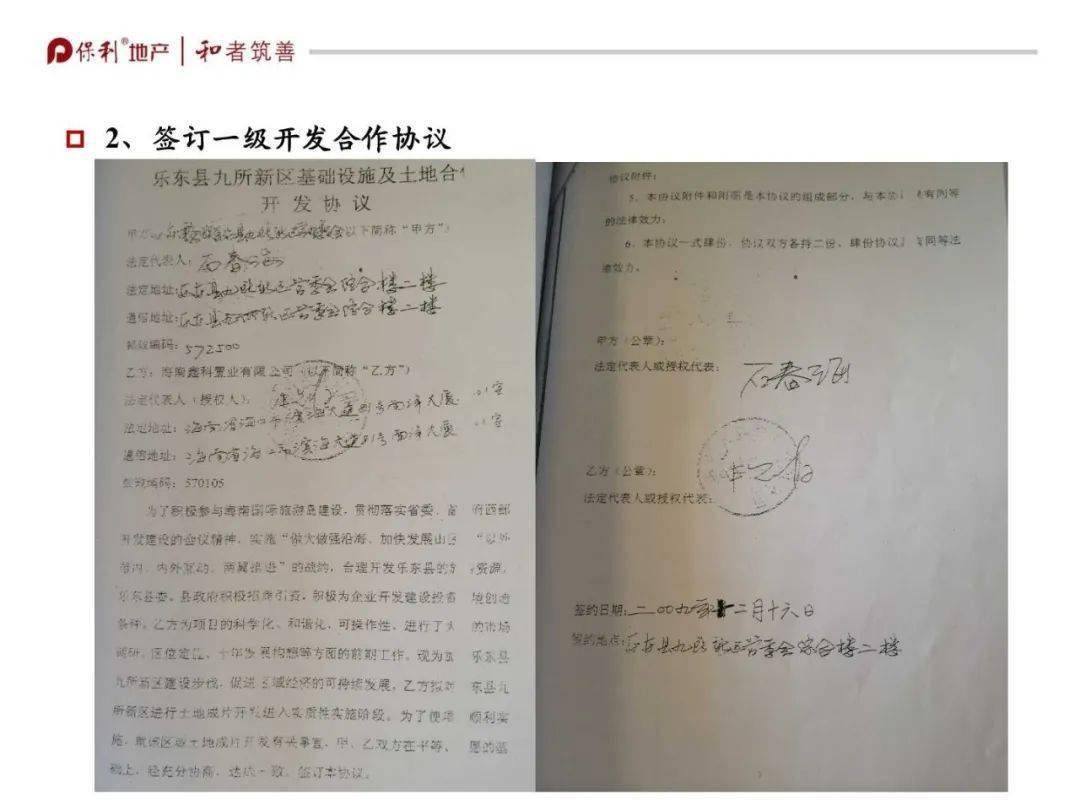 保利®地产 | 和者筑善
2、签订一级开发合作协议
乐东县九所新区基础设施及土地合
开发协议
甲方 以下简称“甲方”)
法定代表人:
法定地址:乐东县九所新区管委会综合楼二楼
通信地址:乐东县九所新区管委会综合楼二楼
邮政编码:572500
乙方:海南鑫科置业有限公司(以下简称“乙方”)
法定代表人(授权人):
法定地址:海南省海口市滨海大道 号南洋大厦
通信地址:海南省海口市滨海大道 号南洋大厦
邮政编码:570105
为了积极参与海南国际旅游岛建设,贯彻落实省委、省 府西部
开发建设的会议精神,实施“做大做强沿海、加快发展山区 “以外
带内、内外联动、两翼推进”的战略,合理开发乐东县的 资源,
乐东县委、县政府积极招商引资,积极为企业开发建设投资 境创造
条件。乙方为项目的科学化、和谐化、可操作性,进行了大 的市场
调研、区位定位、十年发展构想等方面的前期工作。现为 乐东县
九所新区建设步伐,促进区域经济的可持续发展,乙方拟对 东县九
所新区进行土地成片开发进入实质性实施阶段。为了使项 顺利实
施,就该区域土地成片开发有关事宜,甲、乙双方在平等、 愿的基
础上,经充分协商,达成一致,签订本协议。
协议附件:
5、本协议附件和附图是本协议的组成部分,与本协 有同等
的法律效力;
6、本协议一式肆份,协议双方各持二份,肆份协议 有同等法
律效力。
甲方(公章):
法定代表人或授权代表:
乙方(公章):
法定代表人或授权代表:
签约日期:二00九年十二月十六日
签约地点:乐东县九所新区管委会综合楼二楼